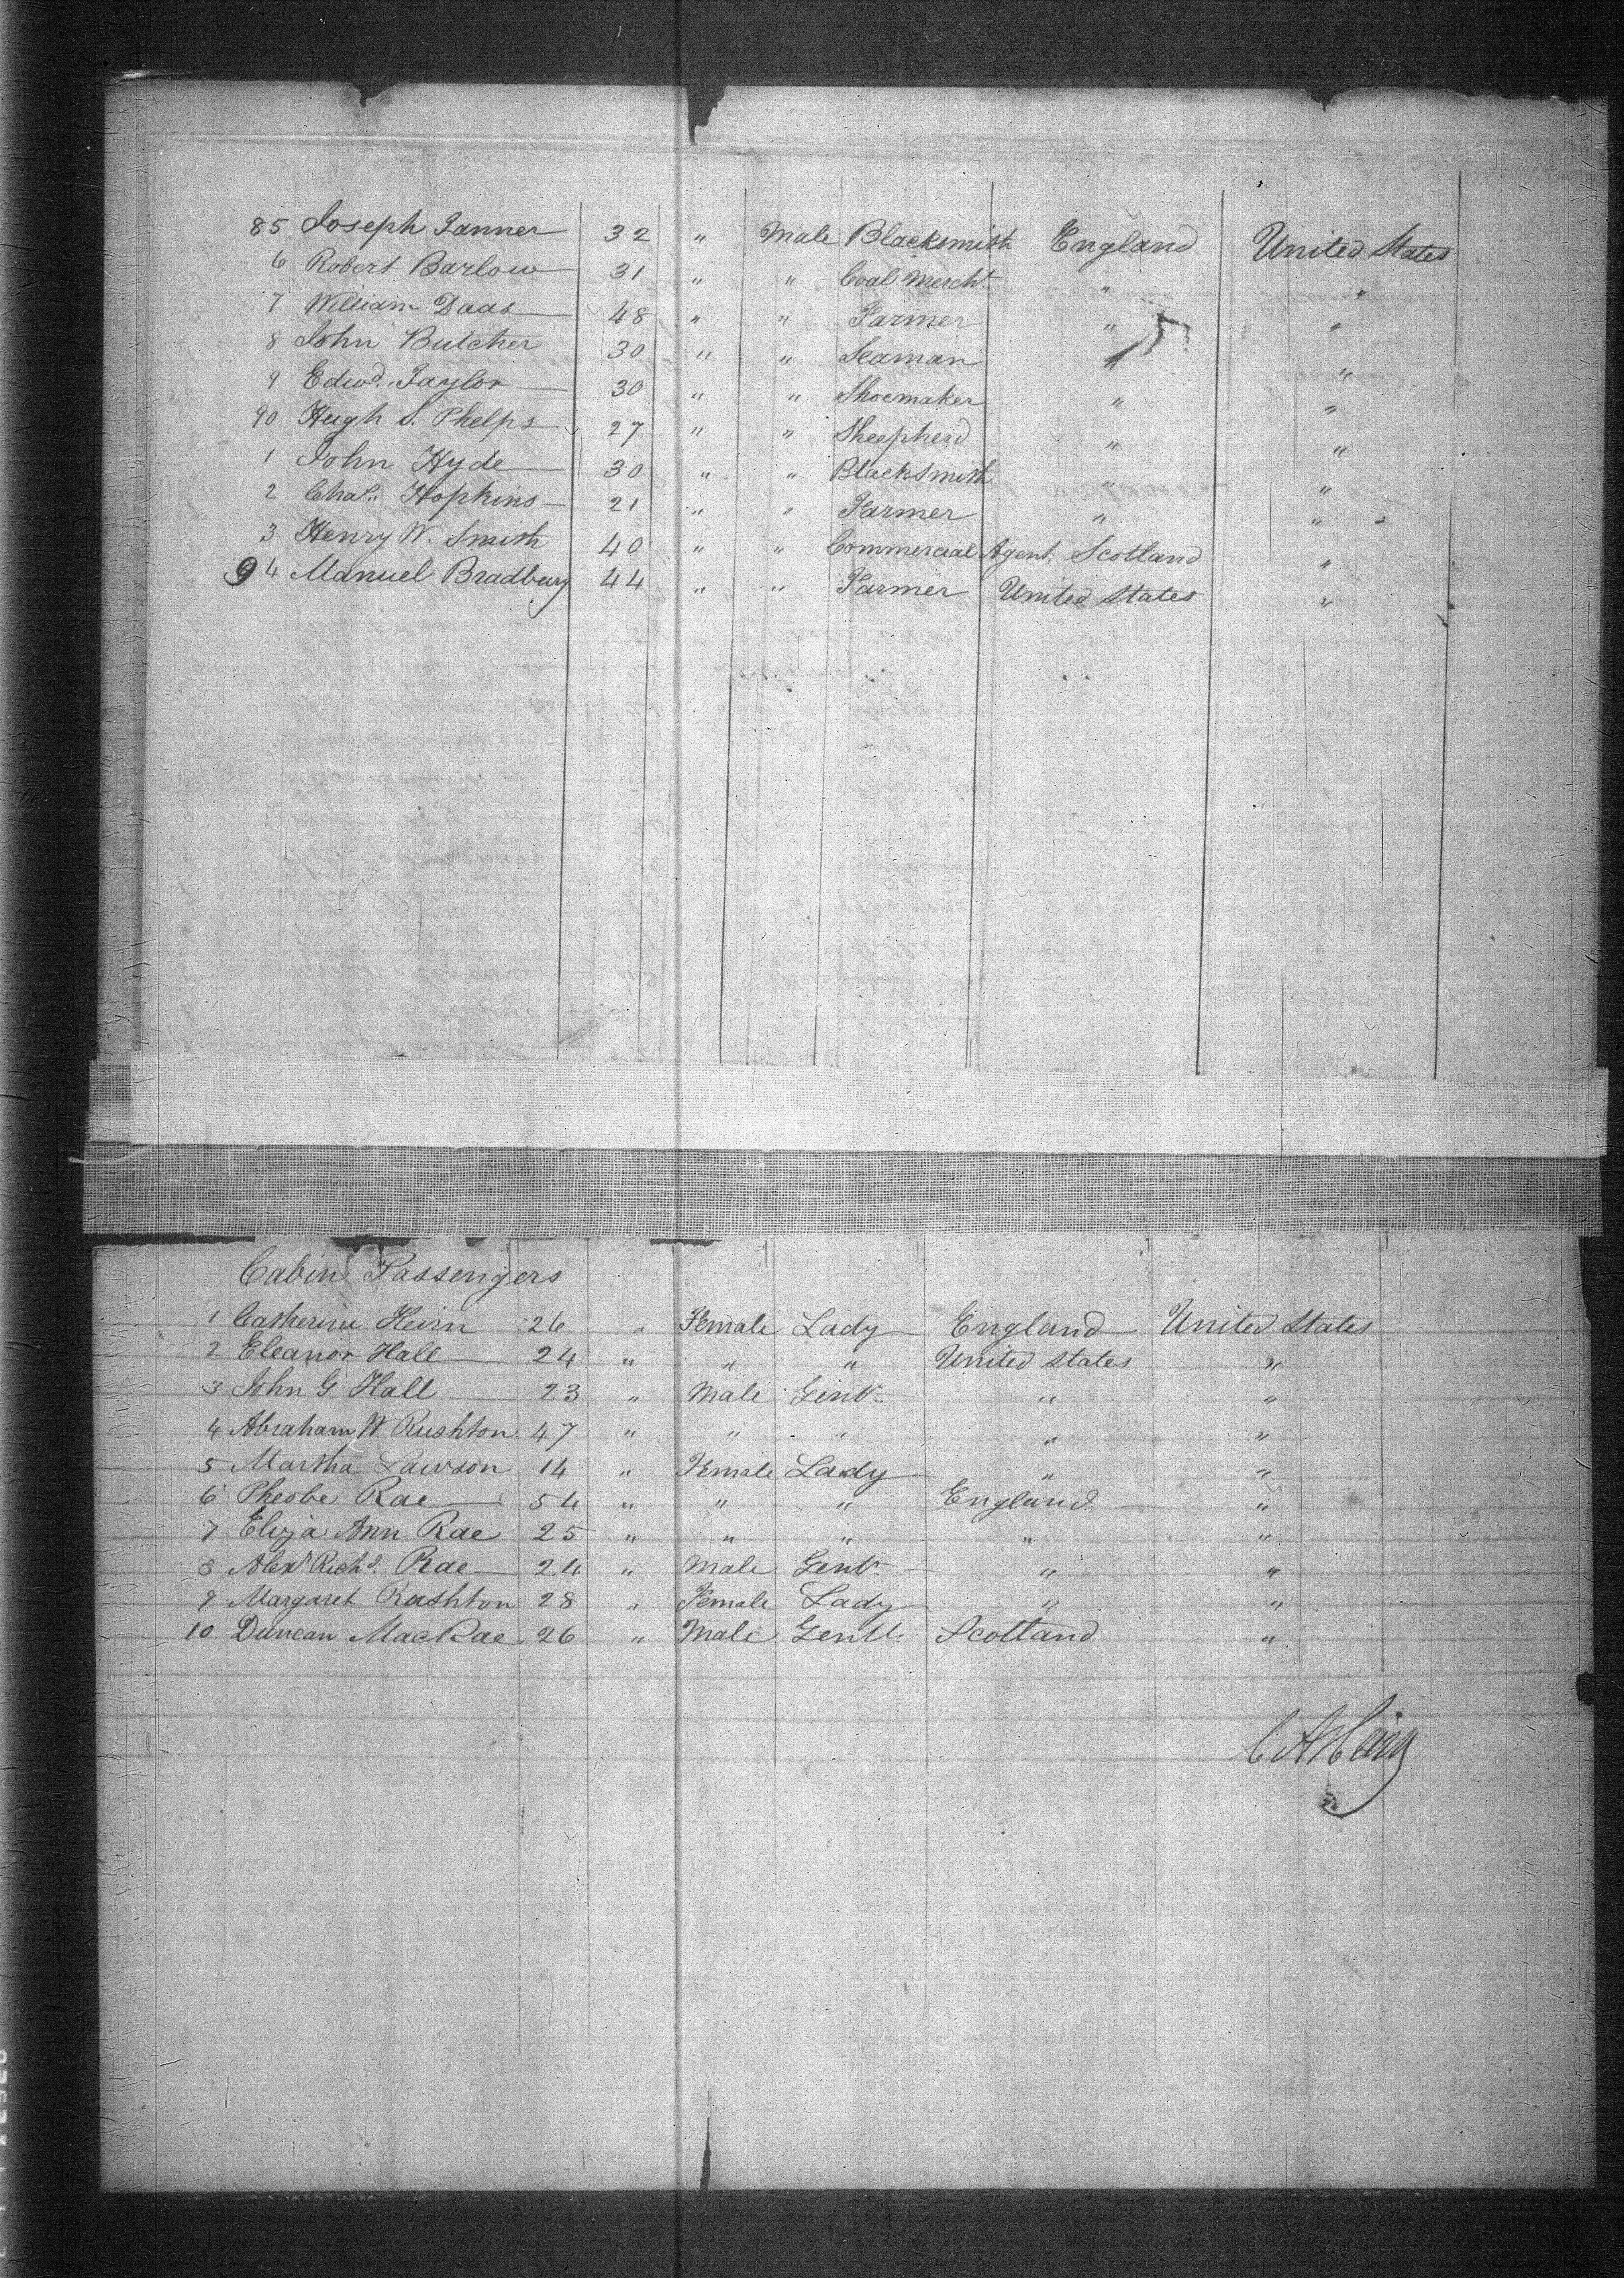 85 Joseph Tanner 32 " Male Blacksmith England United States
6 Robert Barlow 31 " " Coal Mercht. " "
7 William Daas 48 " " Farmer " "
8 John Butcher 30 " " Seaman " "
9 Edwd. Taylor 30 " " Shoemaker " "
90 Hugh S. Phelps 27 " " Sheepherd " "
1 John Hyde 30 " " Blacksmith " "
2 Chas. Hopkins 21 " " Farmer " "
3 Henry W. Smith 40 " " Commercial Agent, Scotland "
94 Manuel Bradbury 44 " " Farmer United States "
Cabin Passengers
1 Catherine 26 " Female Lady England United States
2 Eleanor Hall 24 " " " United States "
3 John G Hall 23 " Male Gent. " "
4 Abraham W Rushton 47 " " " " "
5 Martha Lawson 14 " Female Lady " "
6 Pheobe Rae 54 " " " England "
7 Eliza Ann Rae 25 " " " " "
8 Alexr. Richd. Rae 24 " Male Gent. " "
9 Margaret Rushton 28 " Female Lady " "
10 Duncan MacRae 26 " Male Gentl. Scotland "